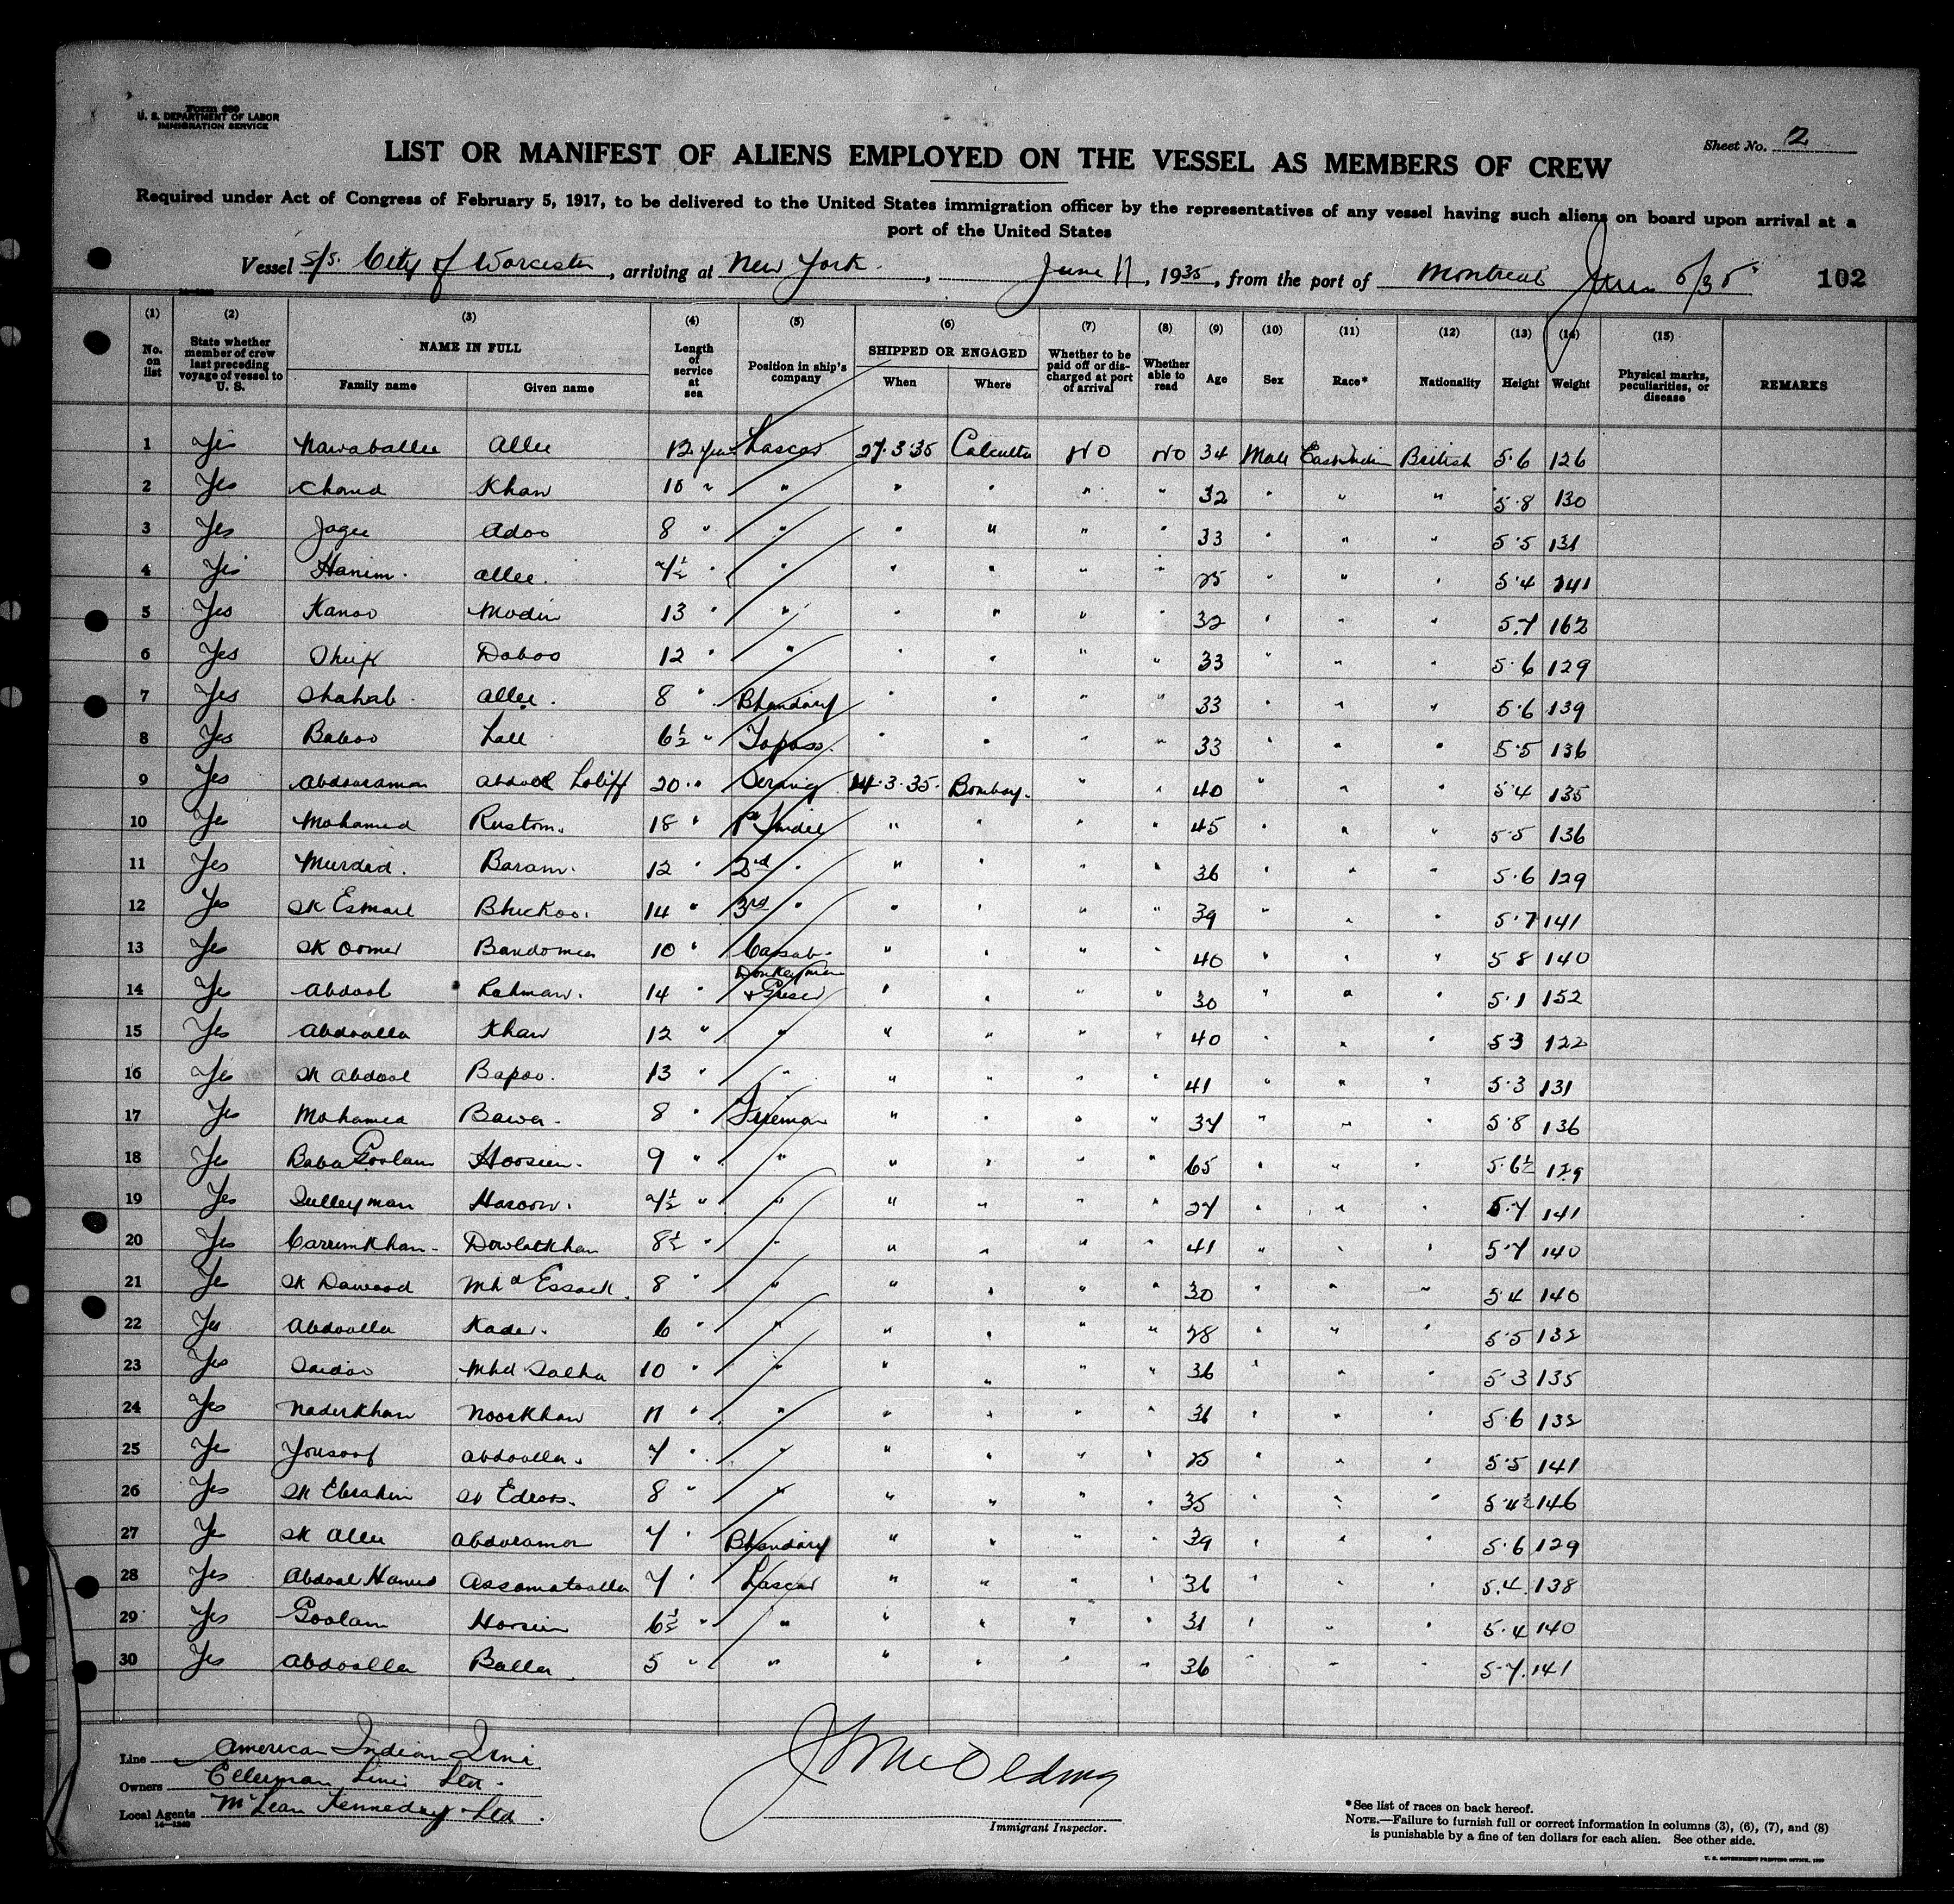 Form 680
U. S. DEPARTMENT OF LABOR
IMMIGRATION SERVICE
Sheet No. 2
LIST OR MANIFEST OF ALIENS EMPLOYED ON THE VESSEL AS MEMBERS OF CREW
Required under Act of Congress of February 5, 1917, to be delivered to the United States immigration officer by the representatives of any vessel having such aliens on board upon arrival at a
port of the United States
Vessel S/S. City of Worcester, arriving at New York, June 11, 1935, from the port of Montreal June 5/35 102
(1) No. on list (2) State whether member of crew last preceding voyage of vessel to U. S. (3) NAME IN FULL Family name Given name (4) Length of service at sea (5) Position in ship's company (6) SHIPPED OR ENGAGED When Where (7) Whether to be paid off or discharged at port of arrival (8) Whether able to read (9) Age (10) Sex (11) Race* (12) Nationality (13) Height (14) Weight (15) Physical marks, peculiarities, or disease REMARKS
1 Yes Nawaballee Allee 12 yrs Lascar 27.3.35 Calcutta NO NO 34 Male East Indian British 5.6 126
2 Yes Chand Khan 10 " " " " " " 32 " " " 5.8 130
3 Yes Jagee Adoo 8 " " " " " " 33 " " " 5.5 131
4 Yes Hanim. allee. 7½ " " " " " " 25 " " " 5.4 141
5 Yes Kanoo Modin 13 " " " " " " 32 " " " 5.7 162
6 Yes Sheik Daboo 12 " " " " " " 33 " " " 5.6 129
7 Yes Shahab allee. 8 " Bhandary " " " " 33 " " " 5.6 139
8 Yes Baboo Lall 6½ " Topass. " " " " 33 " " " 5.5 136
9 Yes Abdouraman Abdool Lotiff 20 " Serang 14.3.35. Bombay. " " 40 " " " 5.4 135
10 Yes Mohamed Rustom. 18 " 1st Tindel " " " " 45 " " " 5.5 136
11 Yes Murdad. Baram. 12 " 2nd " " " " " 36 " " " 5.6 129
12 Yes SK Esmail Bhickoo. 14 " 3rd " " " " " 39 " " " 5.7 141
13 Yes SK Oomer Bandomea 10 " Cassab. " " " " 40 " " " 5 8 140
14 Yes Abdool Rahman. 14 " Donkeyman & Greaser " " " " 30 " " " 5.1 152
15 Yes Abdoolla Khan 12 " " " " " " 40 " " " 5 3 122
16 Yes SK Abdool Bapoo. 13 " " " " " " 41 " " " 5.3 131
17 Yes Mohamed Bawa. 8 " Fireman " " " " 37 " " " 5.8 136
18 Yes Baba Goolam Hoosien. 9 " " " " " " 65 " " " 5.6½ 129
19 Yes Sulleyman Haroon. 7½ " " " " " " 27 " " " 5.7 141
20 Yes Carrimkhan Dowlatkhan 8½ " " " " " " 41 " " " 5.7 140
21 Yes SK Dawood Mhd Essack. 8 " " " " " " 30 " " " 5.4 140
22 Yes Abdoolla Kader. 6 " " " " " " 28 " " " 5.5 132
23 Yes Saidoo Mhd Salha 10 " " " " " " 36 " " " 5.3 135
24 Yes Naderkhan Noorkhan 11 " " " " " " 31 " " " 5.6 132
25 Yes Yousoof Abdoolla. 7 " " " " " " 25 " " " 5.5 141
26 Yes SK Ebrahim SK Edroos. 8 " " " " " " 35 " " " 5.4½ 146
27 Yes SK Allee Abduramon 7 " Bhandary " " " " 39 " " " 5.6 129
28 Yes Abdool Hamed Assamatoolla 7 " Lascar " " " " 36 " " " 5.4. 138
29 Yes Goolam Hosein 6½ " " " " " " 31 " " " 5.4 140
30 Yes Abdoolla Balla 5 " " " " " " 36 " " " 5.7. 141
Line American Indian Line
Owners Ellerman Lines Ltd.
Local Agents McLean Kennedy Ltd.
14—1240
Immigrant Inspector.
*See list of races on back hereof.
NOTE.—Failure to furnish full or correct information in columns (3), (6), (7), and (8)
is punishable by a fine of ten dollars for each alien. See other side.